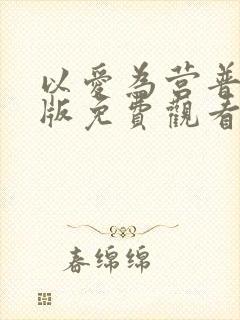 以愛為营普
版免費觀看
春绵绵